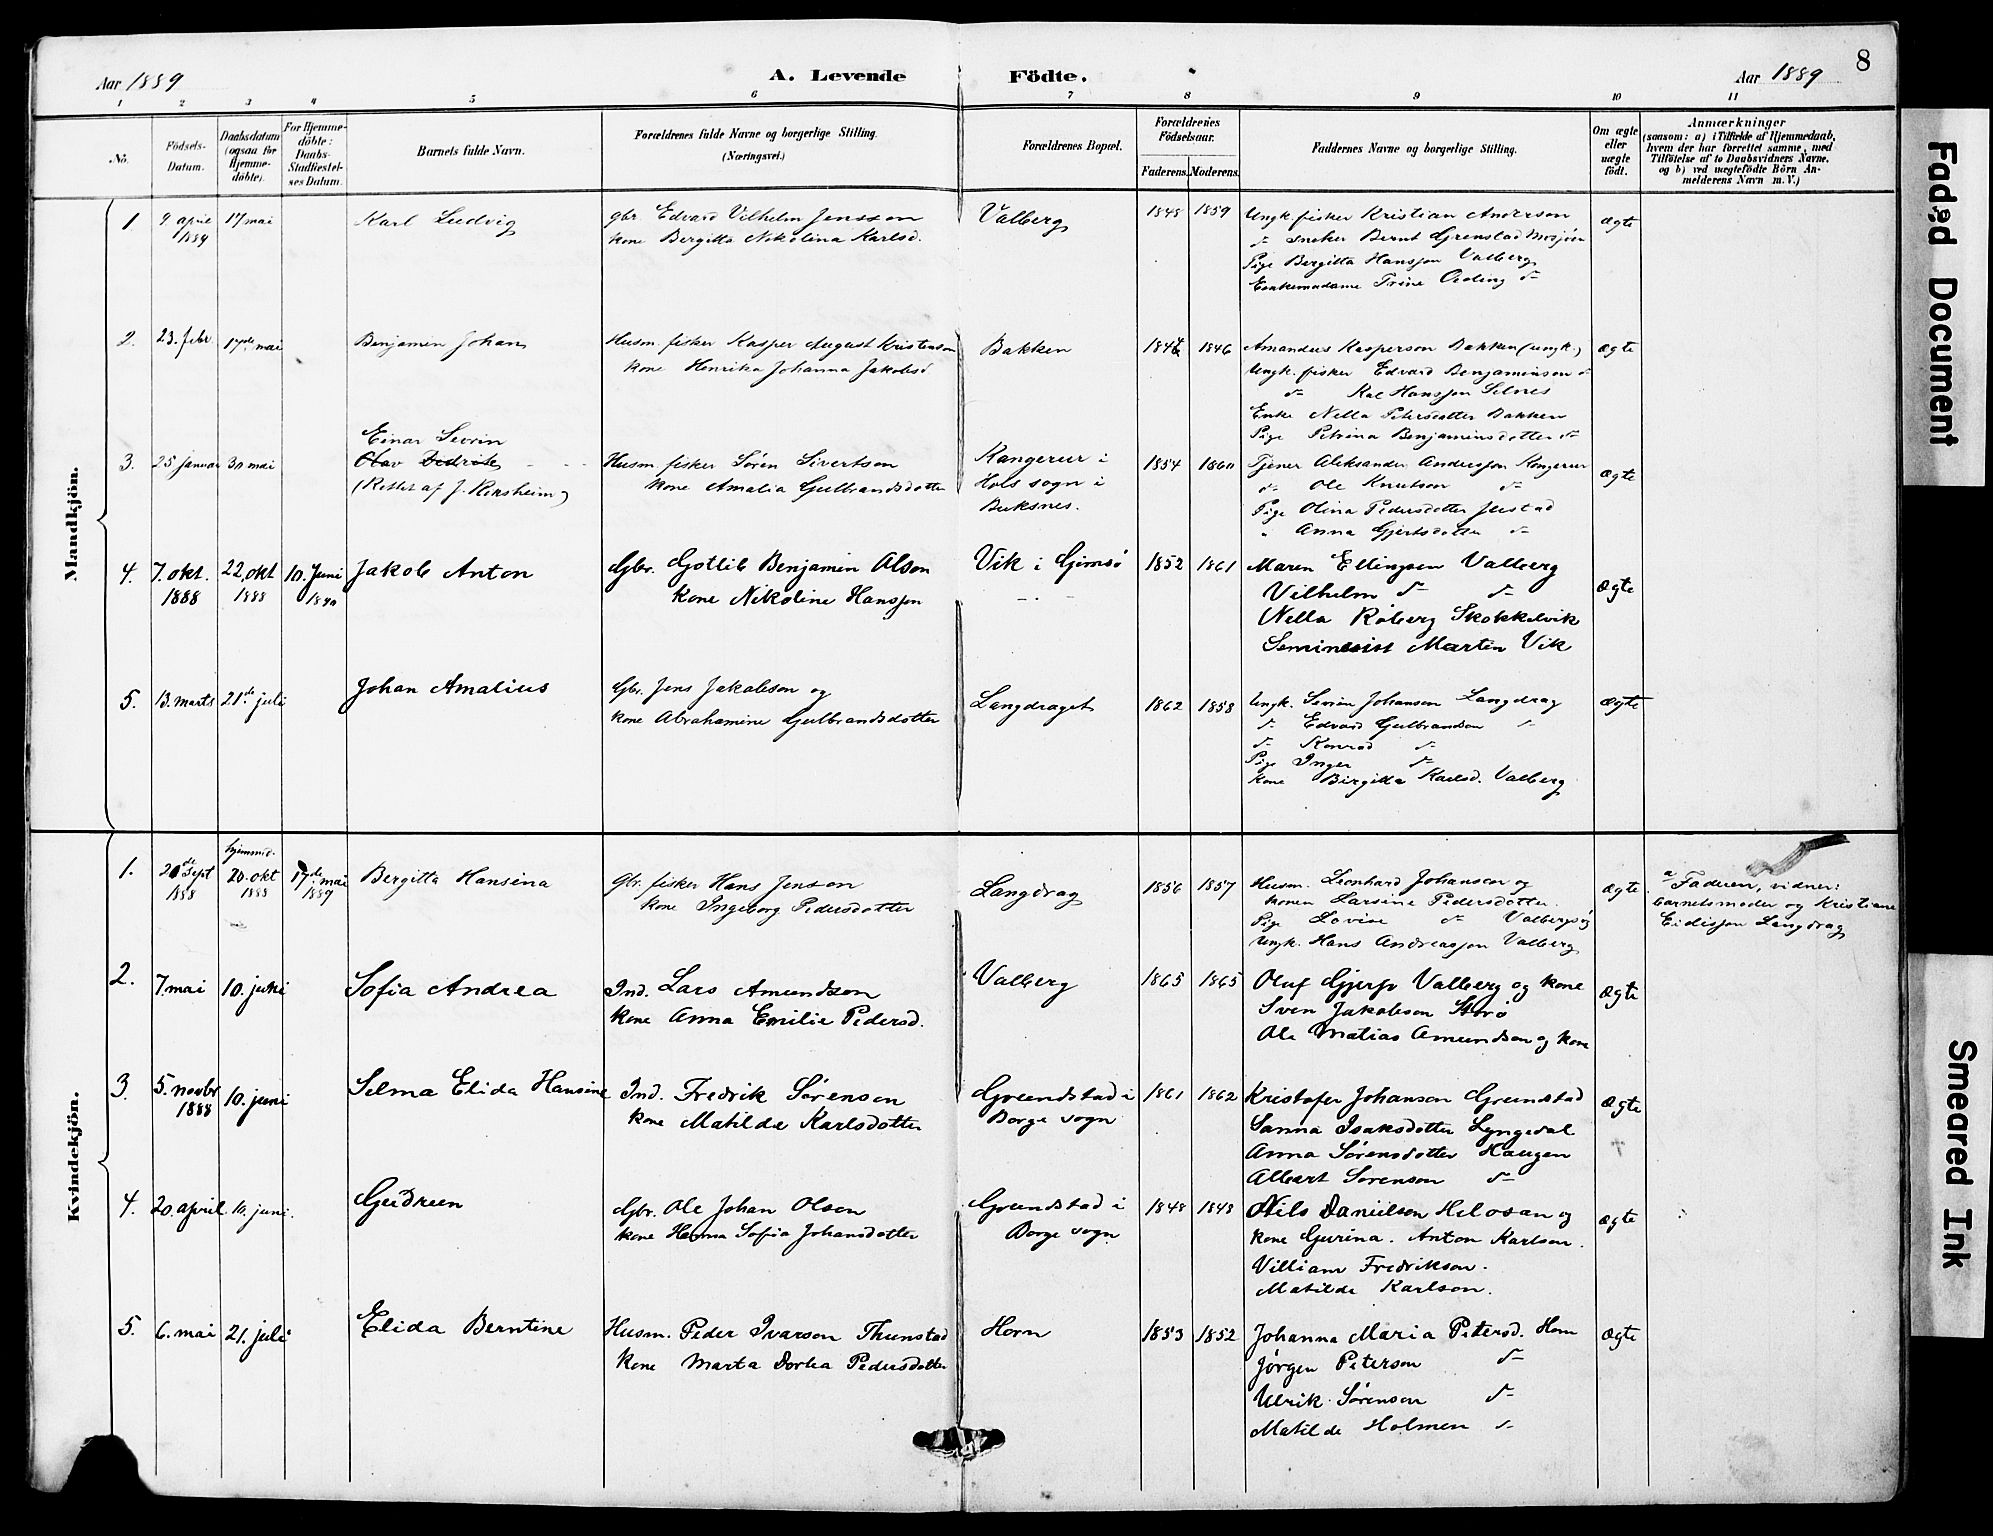 8
Aar 1889
A. Levende Födte.
Aar 1889
1 2 3 4 5 6 7 8 9 10 11
No.
Födsels-
Datum.
Daabsdatum
(ogsaa for
Hjemme-
döbte).
For Hjemme-
döbte:
Daabs-
Stadfæstel-
ses Datum.
Barnets fulde Navn.
Forældrenes fulde Navne og borgerlige Stilling.
(Næringsvei.)
Forældrenes Bopæl.
Forældrenes
Födselsaar.
Faderens. Moderens.
Faddernes Navne og borgerlige Stilling.
Om ægte
eller
uægte
födt.
Anmærkninger
(saasom: a) i Tilfælde af Hjemmedaab,
hvem der har forrettet samme, med
Tilföielse af to Daabsvidners Navne,
og b) ved uægtefödte Börn An-
melderens Navn m. V.)
Mandkjön.
1
9 april
1889
17 mai
Karl Ludvig
gbr. Edvard Vilhelm Jensson
kone Bergitta Nikolina Karlsd.
Valberg
1848 1859
Ungk. fisker Kristian Anderson
Bernt Grenstad Mosjøen
Pige Bergitta Hansson Valberg
Enkemadame Trine
ægte
2.
23. febr.
17de mai
Benjamin Johan
Husm. fisker Kasper August Kristenson
kone Henrika Johanna Jakobsd
Bakken
1846
Amandus Kasperson Bakken (ungk.)
Ungk. fisker Edvard Benjaminson
Hansson Selnes
Enke Nella Petersdotter Bakken
Pige Petrina Benjaminsdotter
ægte
3.
25 januar
30 mai
Einar Sevrin
Olav Dedrik
(Rettet af J. Reksheim)
Husm. fisker Søren Sivertson
kone Amalia Gulbrandsdotter
Kangerur i
Hols sogn i
Buksnes.
1854 1860
Tjener Aleksander Andersson Kangerur
Ole Knutson
Pige Olina Pedersdotter
Anna Gjertsdotter
ægte
4.
7. okt.
1888
22. okt
1888
10. Juni
Jakob Anton
Gbr. Gotlib Benjamin Olson
kone Nikoline Hansson
Vik i Gimsø
1852 1861
Maren Ellingsen Valberg
Vilhelm
Nella Røberg Skokkelvik
Seminarist Martin Vik
ægte
5.
13. marts
21de juli
Johan Amalius
Gbr. Jens Jakobson og
kone Abrahamine Gulbrandsdotter
Langdraget
1862 1858
Ungk. Johanson Langdrag
Edvard Gulbrandson
Konrad
Pige Inger
kone Birgitta Karlsd. Valberg
ægte
Kvindekjön.
1.
20de Sept
1888
hjemmed.
20. okt
1888
17de mai
1889
Bergitta Hansina
gbr. fisker Hans Jenson
kone Ingeborg Pedersdotter
Langdrag
1856 1857
Husm. Leonhard Johanson og
konen Larsine Pedersdotter.
Pige Lovise Valbergsøj
Ungk. Hans Andreasson Valberg
ægte
a/ Faderen, vidner:
barnets moder og Kristiane
Eidisson Langdrag
2.
7. mai
10. juni
Sofia Andrea
Ind. Lars Amundson
kone Anna Emilie Pedersd.
Valberg
1865 1865
Oluf Valberg og kone
Sven Jakobson
Ole Matias Amundson og kone
ægte
3.
5. novbr
1888
10. juni
Selma Elida Hansine
Ind. Fredrik Sørenson
kone Matilde Karlsdotter
Grundstad i
Borge sogn
1861 1862
Kristofer Johanson Grundstad
Sanna Isaksdotter Lyngedal
Anna Sørensdotter Haugen
Albert Sørenson
ægte
4.
20. april
10. juni.
Gudrun
Gbr. Ole Johan Olson
kone Hanna Sofia Johansdotter
Grundstad i
Borge sogn
1848 1848
Nils Danielson og
kone Gurina. Anton Karlson.
Villiam Fredrikson.
Matilde Karlson.
ægte
5.
6. mai
21. juli
Elida Berntine
Husm. Peder Ivarson Thunstad
kone Marta Dorka Pedersdotter
Horn
1853 1852
Johanna Maria Petersd. Horn
Jørgen Peterson
Ulrik Sørenson
Matilde Holmen
ægte
Faded Document
Smeared Ink